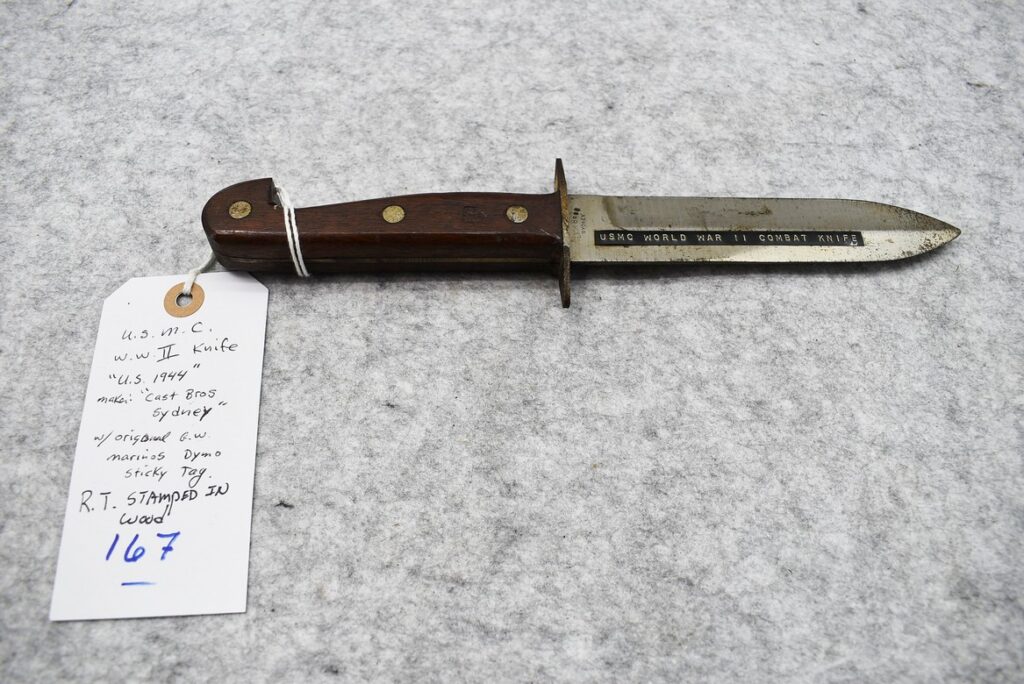 U.S. M. C.
W.W. II Knife
"U.S. 1944"
maker: "Cast Bros
Sydney"
w/ original G.W.
marinos Dymo
sticky Tag.
R.T. STAMPED IN
Wood
167
USMC WORLD WAR II COMBAT KNIFE